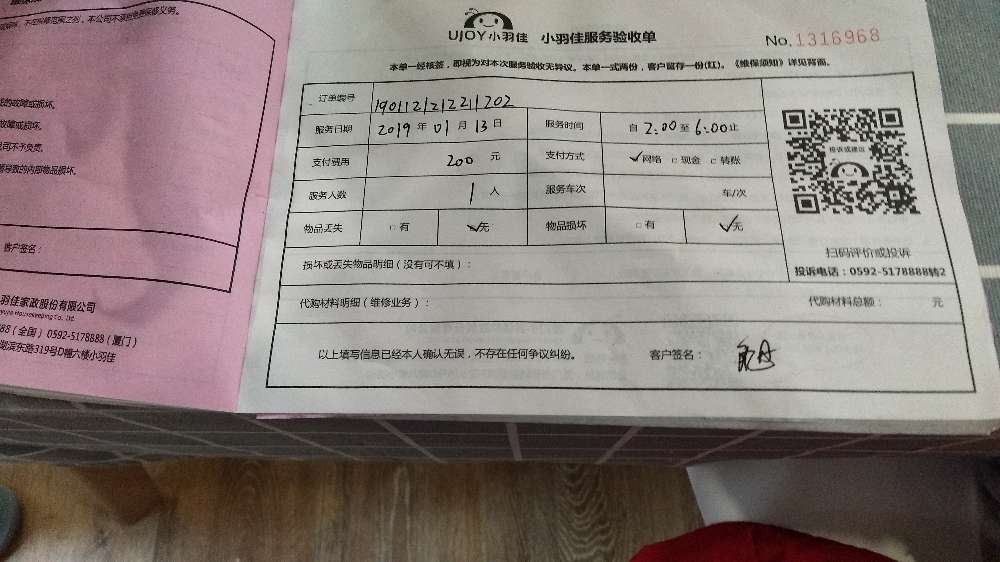 本公司不承担任何保修义务。
的故障或损坏。
故障或损坏。
司不予负责。
客户签名：
羽佳家政股份有限公司
88（全国） 0592-5178888（厦门）
湖滨东路319号D幢六楼小羽佳
UJOY小羽佳 小羽佳服务验收单
No.1316968
本单一经核签，即视为对本次服务验收无异议。本单一式两份，客户留存一份(红)。《维保须知》详见背面。
订单编号 190112121221202
服务日期 2019 年 01 月 13 日 服务时间 自 2:00 至 6:00 止
支付费用 200 元 支付方式 ✓网络 □ 现金 □ 转账
服务人数 1 人 服务车次 车/次
物品丢失 □ 有 ✓无 物品损坏 □ 有 ✓无
投诉或建议
扫码评价或投诉
投诉电话：0592-5178888转2
损坏或丢失物品明细（没有可不填）：
代购材料明细（维修业务）： 代购材料总额： 元
以上填写信息已经本人确认无误，不存在任何争议纠纷。 客户签名：